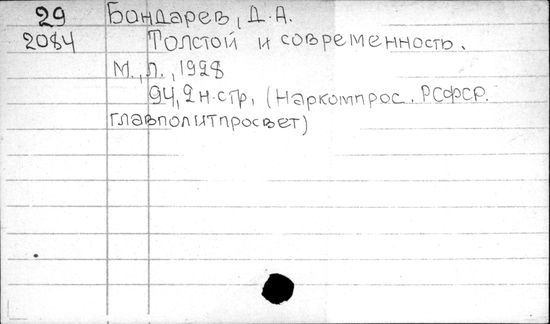 29 Бондарев, Д.А.
2084 Толстой и современность.
М., Л., 1928
94, 2 н.стр, (Наркомпрос. РСФСР.
главполитпросвет)